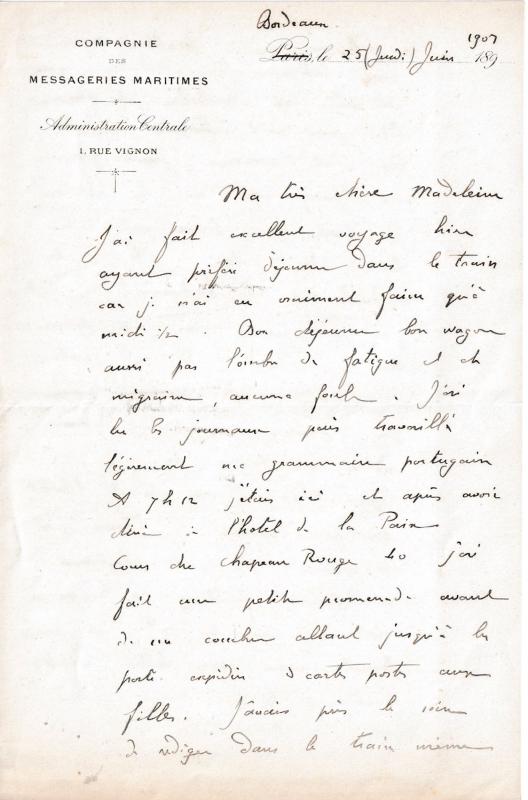 Bordeaux.
COMPAGNIE
DES
MESSAGERIES MARITIMES
Administration Centrale
1, RUE VIGNON
Paris, le 25 (Jeudi) Juin 189
1903
Ma très chère Madeleine
J'ai fait excellent voyage hier
ayant préféré déjeuner dans le train
car je n'ai eu vraiment faim qu'à
midi 1/2. Bon déjeuner bon wagon
aussi pas l'ombre de fatigue et de
migraine, aucune foule. J'ai
lu les journaux puis travaillé
légèrement ma grammaire portugaise
A 7h12 j'étais ici et après avoir
diné à l'hotel de la Paix
Cours du Chapeau Rouge 40 j'ai
fait une petite promenade avant
de me coucher allant jusqu'à la
poste expédier 3 cartes postes aux
filles. J'avais pris le soin
de rediger dans le train même